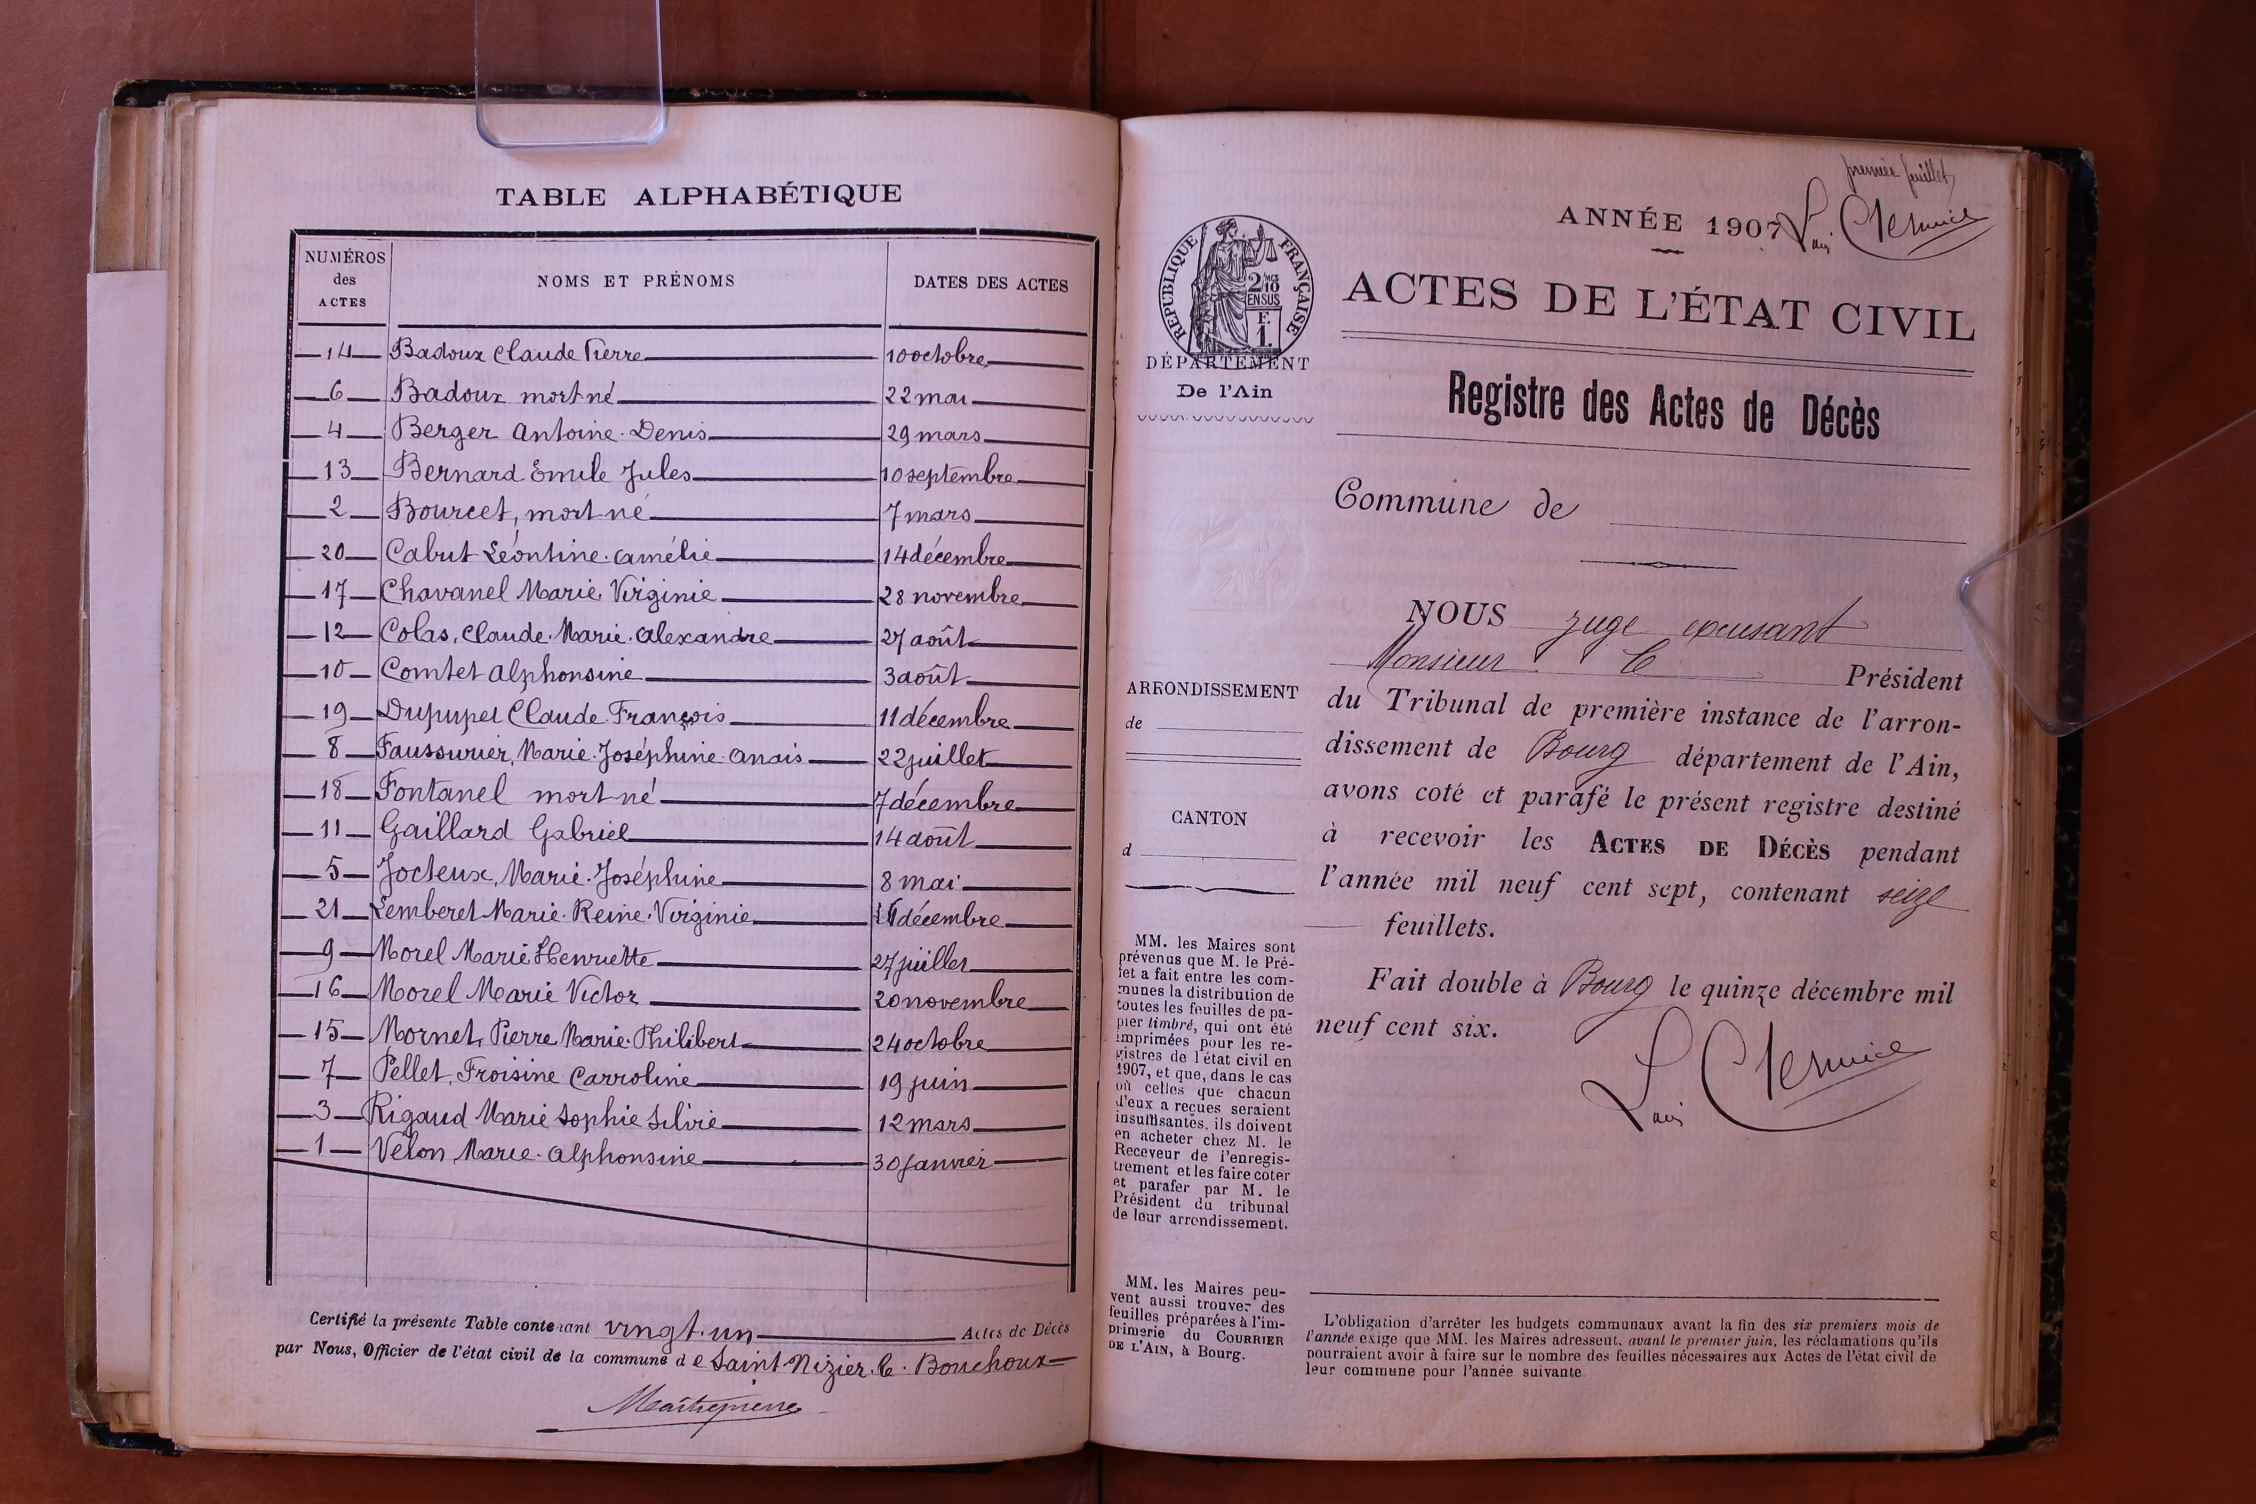 TABLE ALPHABÉTIQUE
NUMÉROS des ACTES NOMS ET PRÉNOMS DATES DES ACTES
14 Badoux Claude Pierre 10 octobre
6 Badoux mort-né 22 mai
4 Berger Antoine Denis 29 mars
13 Bernard Emile Jules 10 septembre
2 Bourcet, mort-né 7 mars
20 Cabut Léontine Amélie 14 décembre
17 Chavanel Marie Virginie 28 novembre
12 Colas, Claude Marie Alexandre 27 août
10 Comtet Alphonsine 3 août
19 Dupupet Claude François 11 décembre
8 Faussurier, Marie Joséphine Anais 22 juillet
18 Fontanel mort-né 7 décembre
11 Gaillard Gabriel 14 août
5 Jocteux, Marie Joséphine 8 mai
21 Lemberet Marie Reine Virginie décembre
9 Morel Marie Henriette 27 juillet
16 Morel Marie Victor 20 novembre
15 Mornet, Pierre Marie Philibert 24 octobre
7 Pellet, Froisine Carroline 19 juin
3 Rigaud Marie Sophie Silvie 12 mars
1 Velon, Marie Alphonsine 30 janvier
Certifié la présente Table contenant vingt-un Actes de Décès
par Nous, Officier de l'état civil de la commune de Saint-Nizier-le-Bouchoux
première feuillet
ANNÉE 1907
RÉPUBLIQUE FRANÇAISE
2/10 EN SUS
F. 1.
ACTES DE L'ÉTAT CIVIL
DÉPARTEMENT
De l'Ain
Registre des Actes de Décès
Commune de
NOUS juge excusant
Monsieur le Président
du Tribunal de première instance de l'arron-
dissement de Bourg département de l'Ain,
avons coté et parafé le présent registre destiné
à recevoir les ACTES DE DÉCÈS pendant
l'année mil neuf cent sept, contenant seize
feuillets.
Fait double à Bourg le quinze décembre mil
neuf cent six.
ARRONDISSEMENT
de
CANTON
d
MM. les Maires sont
prévenus que M. le Pré-
fet a fait entre les com-
munes la distribution de
toutes les feuilles de pa-
pier timbré, qui ont été
imprimées pour les re-
gistres de l'état civil en
1907, et que, dans le cas
où celles que chacun
d'eux a reçues seraient
insuffisantes, ils doivent
en acheter chez M. le
Receveur de l'enregis-
trement et les faire coter
et parafer par M. le
Président du tribunal
de leur arrondissement.
MM. les Maires peu-
vent aussi trouver des
feuilles préparées à l'im-
primerie du COURRIER
DE L'AIN, à Bourg.
L'obligation d'arrêter les budgets communaux avant la fin des six premiers mois de
l'année exige que MM. les Maires adressent, avant le premier juin, les réclamations qu'ils
pourraient avoir à faire sur le nombre des feuilles nécessaires aux Actes de l'état civil de
leur commune pour l'année suivante